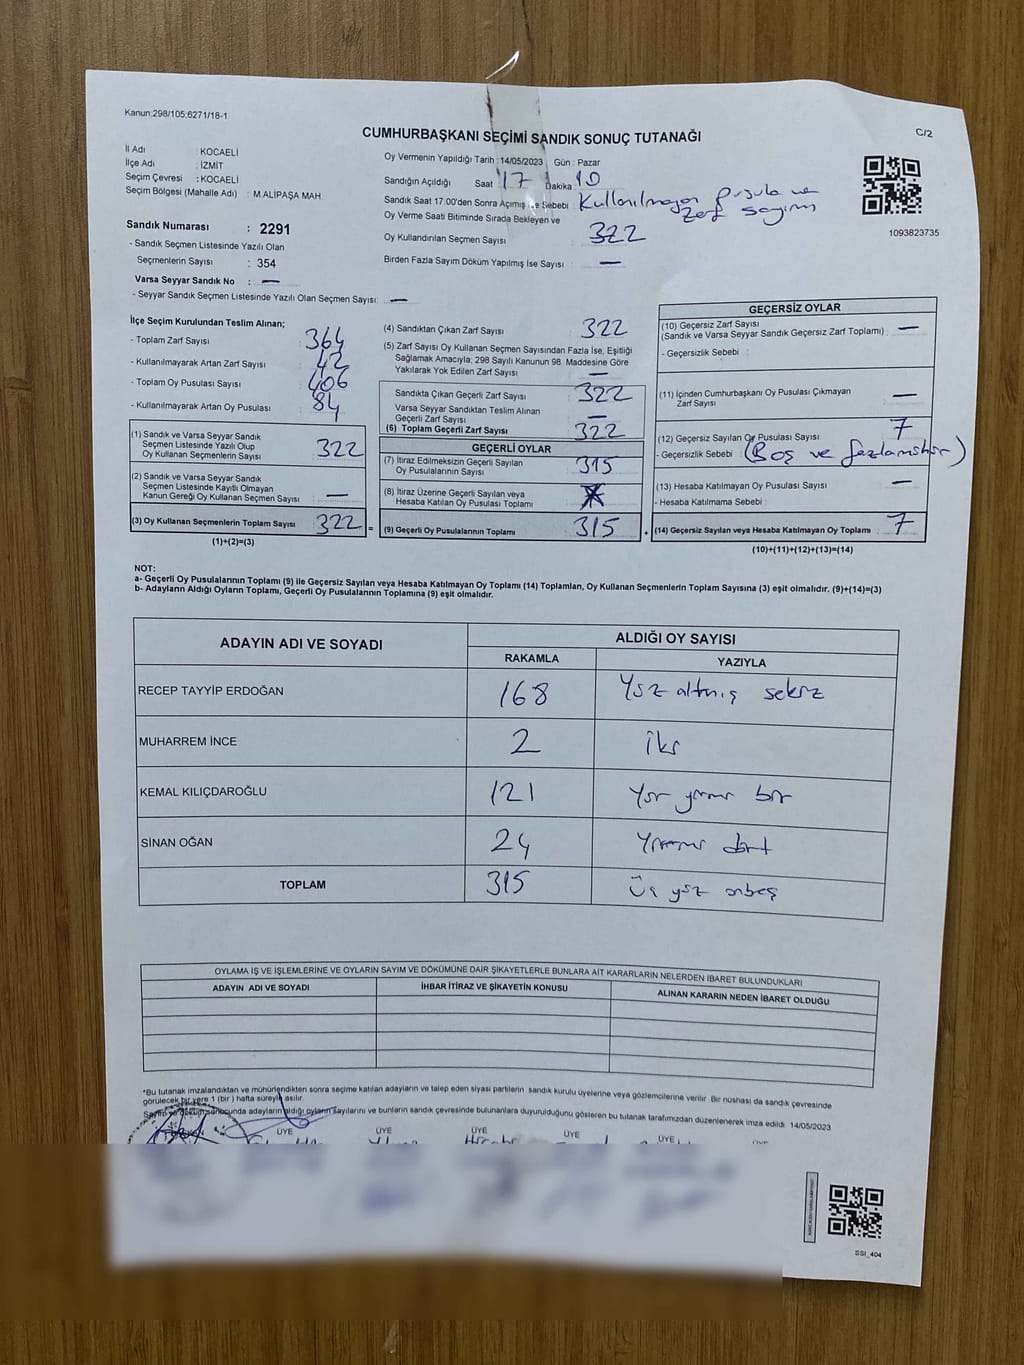 Kanun:298/105;6271/18-1
CUMHURBAŞKANI SEÇİMİ SANDIK SONUÇ TUTANAĞI
C/2
İl Adı : KOCAELİ
İlçe Adı : İZMİT
Seçim Çevresi : KOCAELİ
Seçim Bölgesi (Mahalle Adı) : M.ALİPAŞA MAH.
Sandık Numarası : 2291
- Sandık Seçmen Listesinde Yazılı Olan
Seçmenlerin Sayısı : 354
Varsa Seyyar Sandık No : —
- Seyyar Sandık Seçmen Listesinde Yazılı Olan Seçmen Sayısı : —
Oy Vermenin Yapıldığı Tarih : 14/05/2023 Gün : Pazar
Sandığın Açıldığı Saat : 17 Dakika : 10
Sandık Saat 17.00'den Sonra Açımış ise Sebebi : Kullanılmayan pusula ve
zarf sayımı
Oy Verme Saati Bitiminde Sırada Bekleyen ve
Oy Kullandırılan Seçmen Sayısı : 322
Birden Fazla Sayım Döküm Yapılmış İse Sayısı : —
1093823735
İlçe Seçim Kurulundan Teslim Alınan;
- Toplam Zarf Sayısı : 364
- Kullanılmayarak Artan Zarf Sayısı : 42
- Toplam Oy Pusulası Sayısı : 406
- Kullanılmayarak Artan Oy Pusulası : 84
(1) Sandık ve Varsa Seyyar Sandık
Seçmen Listesinde Yazılı Olup
Oy Kullanan Seçmenlerin Sayısı : 322
(2) Sandık ve Varsa Seyyar Sandık
Seçmen Listesinde Kayıtlı Olmayan
Kanun Gereği Oy Kullanan Seçmen Sayısı : —
(3) Oy Kullanan Seçmenlerin Toplam Sayısı : 322 =
(1)+(2)=(3)
(4) Sandıktan Çıkan Zarf Sayısı : 322
(5) Zarf Sayısı Oy Kullanan Seçmen Sayısından Fazla İse, Eşitliği
Sağlamak Amacıyla; 298 Sayılı Kanunun 98. Maddesine Göre
Yakılarak Yok Edilen Zarf Sayısı : —
Sandıkta Çıkan Geçerli Zarf Sayısı : 322
Varsa Seyyar Sandıktan Teslim Alınan
Geçerli Zarf Sayısı : —
(6) Toplam Geçerli Zarf Sayısı : 322
GEÇERLİ OYLAR
(7) İtiraz Edilmeksizin Geçerli Sayılan
Oy Pusulalarının Sayısı : 315
(8) İtiraz Üzerine Geçerli Sayılan veya
Hesaba Katılan Oy Pusulası Toplamı :
(9) Geçerli Oy Pusulalarının Toplamı : 315 +
GEÇERSİZ OYLAR
(10) Geçersiz Zarf Sayısı
(Sandık ve Varsa Seyyar Sandık Geçersiz Zarf Toplamı) : —
- Geçersizlik Sebebi :
(11) İçinden Cumhurbaşkanı Oy Pusulası Çıkmayan
Zarf Sayısı : —
(12) Geçersiz Sayılan Oy Pusulası Sayısı : 7
- Geçersizlik Sebebi : (Boş ve fazlamühür)
(13) Hesaba Katılmayan Oy Pusulası Sayısı : —
- Hesaba Katılmama Sebebi :
(14) Geçersiz Sayılan veya Hesaba Katılmayan Oy Toplamı : 7
(10)+(11)+(12)+(13)=(14)
NOT:
a- Geçerli Oy Pusulalarının Toplamı (9) ile Geçersiz Sayılan veya Hesaba Katılmayan Oy Toplamı (14) Toplamları, Oy Kullanan Seçmenlerin Toplam Sayısına (3) eşit olmalıdır. (9)+(14)=(3)
b- Adayların Aldığı Oyların Toplamı, Geçerli Oy Pusulalarının Toplamına (9) eşit olmalıdır.
ADAYIN ADI VE SOYADI
ALDIĞI OY SAYISI
RAKAMLA YAZIYLA
RECEP TAYYİP ERDOĞAN 168 Yüz altmış sekiz
MUHARREM İNCE 2 İki
KEMAL KILIÇDAROĞLU 121 Yüz yirmi bir
SİNAN OĞAN 24 Yirmi dört
TOPLAM 315 Üç yüz onbeş
OYLAMA İŞ VE İŞLEMLERİNE VE OYLARIN SAYIM VE DÖKÜMÜNE DAİR ŞİKAYETLERLE BUNLARA AİT KARARLARIN NELERDEN İBARET BULUNDUKLARI
ADAYIN ADI VE SOYADI İHBAR İTİRAZ VE ŞİKAYETİN KONUSU ALINAN KARARIN NEDEN İBARET OLDUĞU
*Bu tutanak imzalandıktan ve mühürlendikten sonra seçime katılan adayların ve talep eden siyasi partilerin sandık kurulu üyelerine veya gözlemcilerine verilir. Bir nüshası da sandık çevresinde
görülecek bir yere 1 (bir ) hafta süreyle asılır.
Sayım ve döküm sonucunda adayların aldığı oyların sayılarını ve bunların sandık çevresinde bulunanlara duyurulduğunu gösteren bu tutanak tarafımızdan düzenlenerek imza edildi. 14/05/2023
ÜYE ÜYE ÜYE ÜYE ÜYE ÜYE
SSİ_404